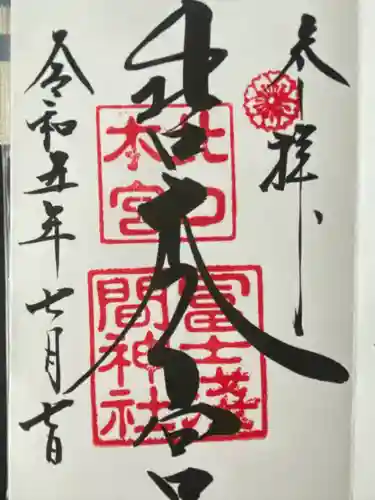 奉拝
北口本宮
北口
本宮
冨士浅
間神社
令和五年七月七日